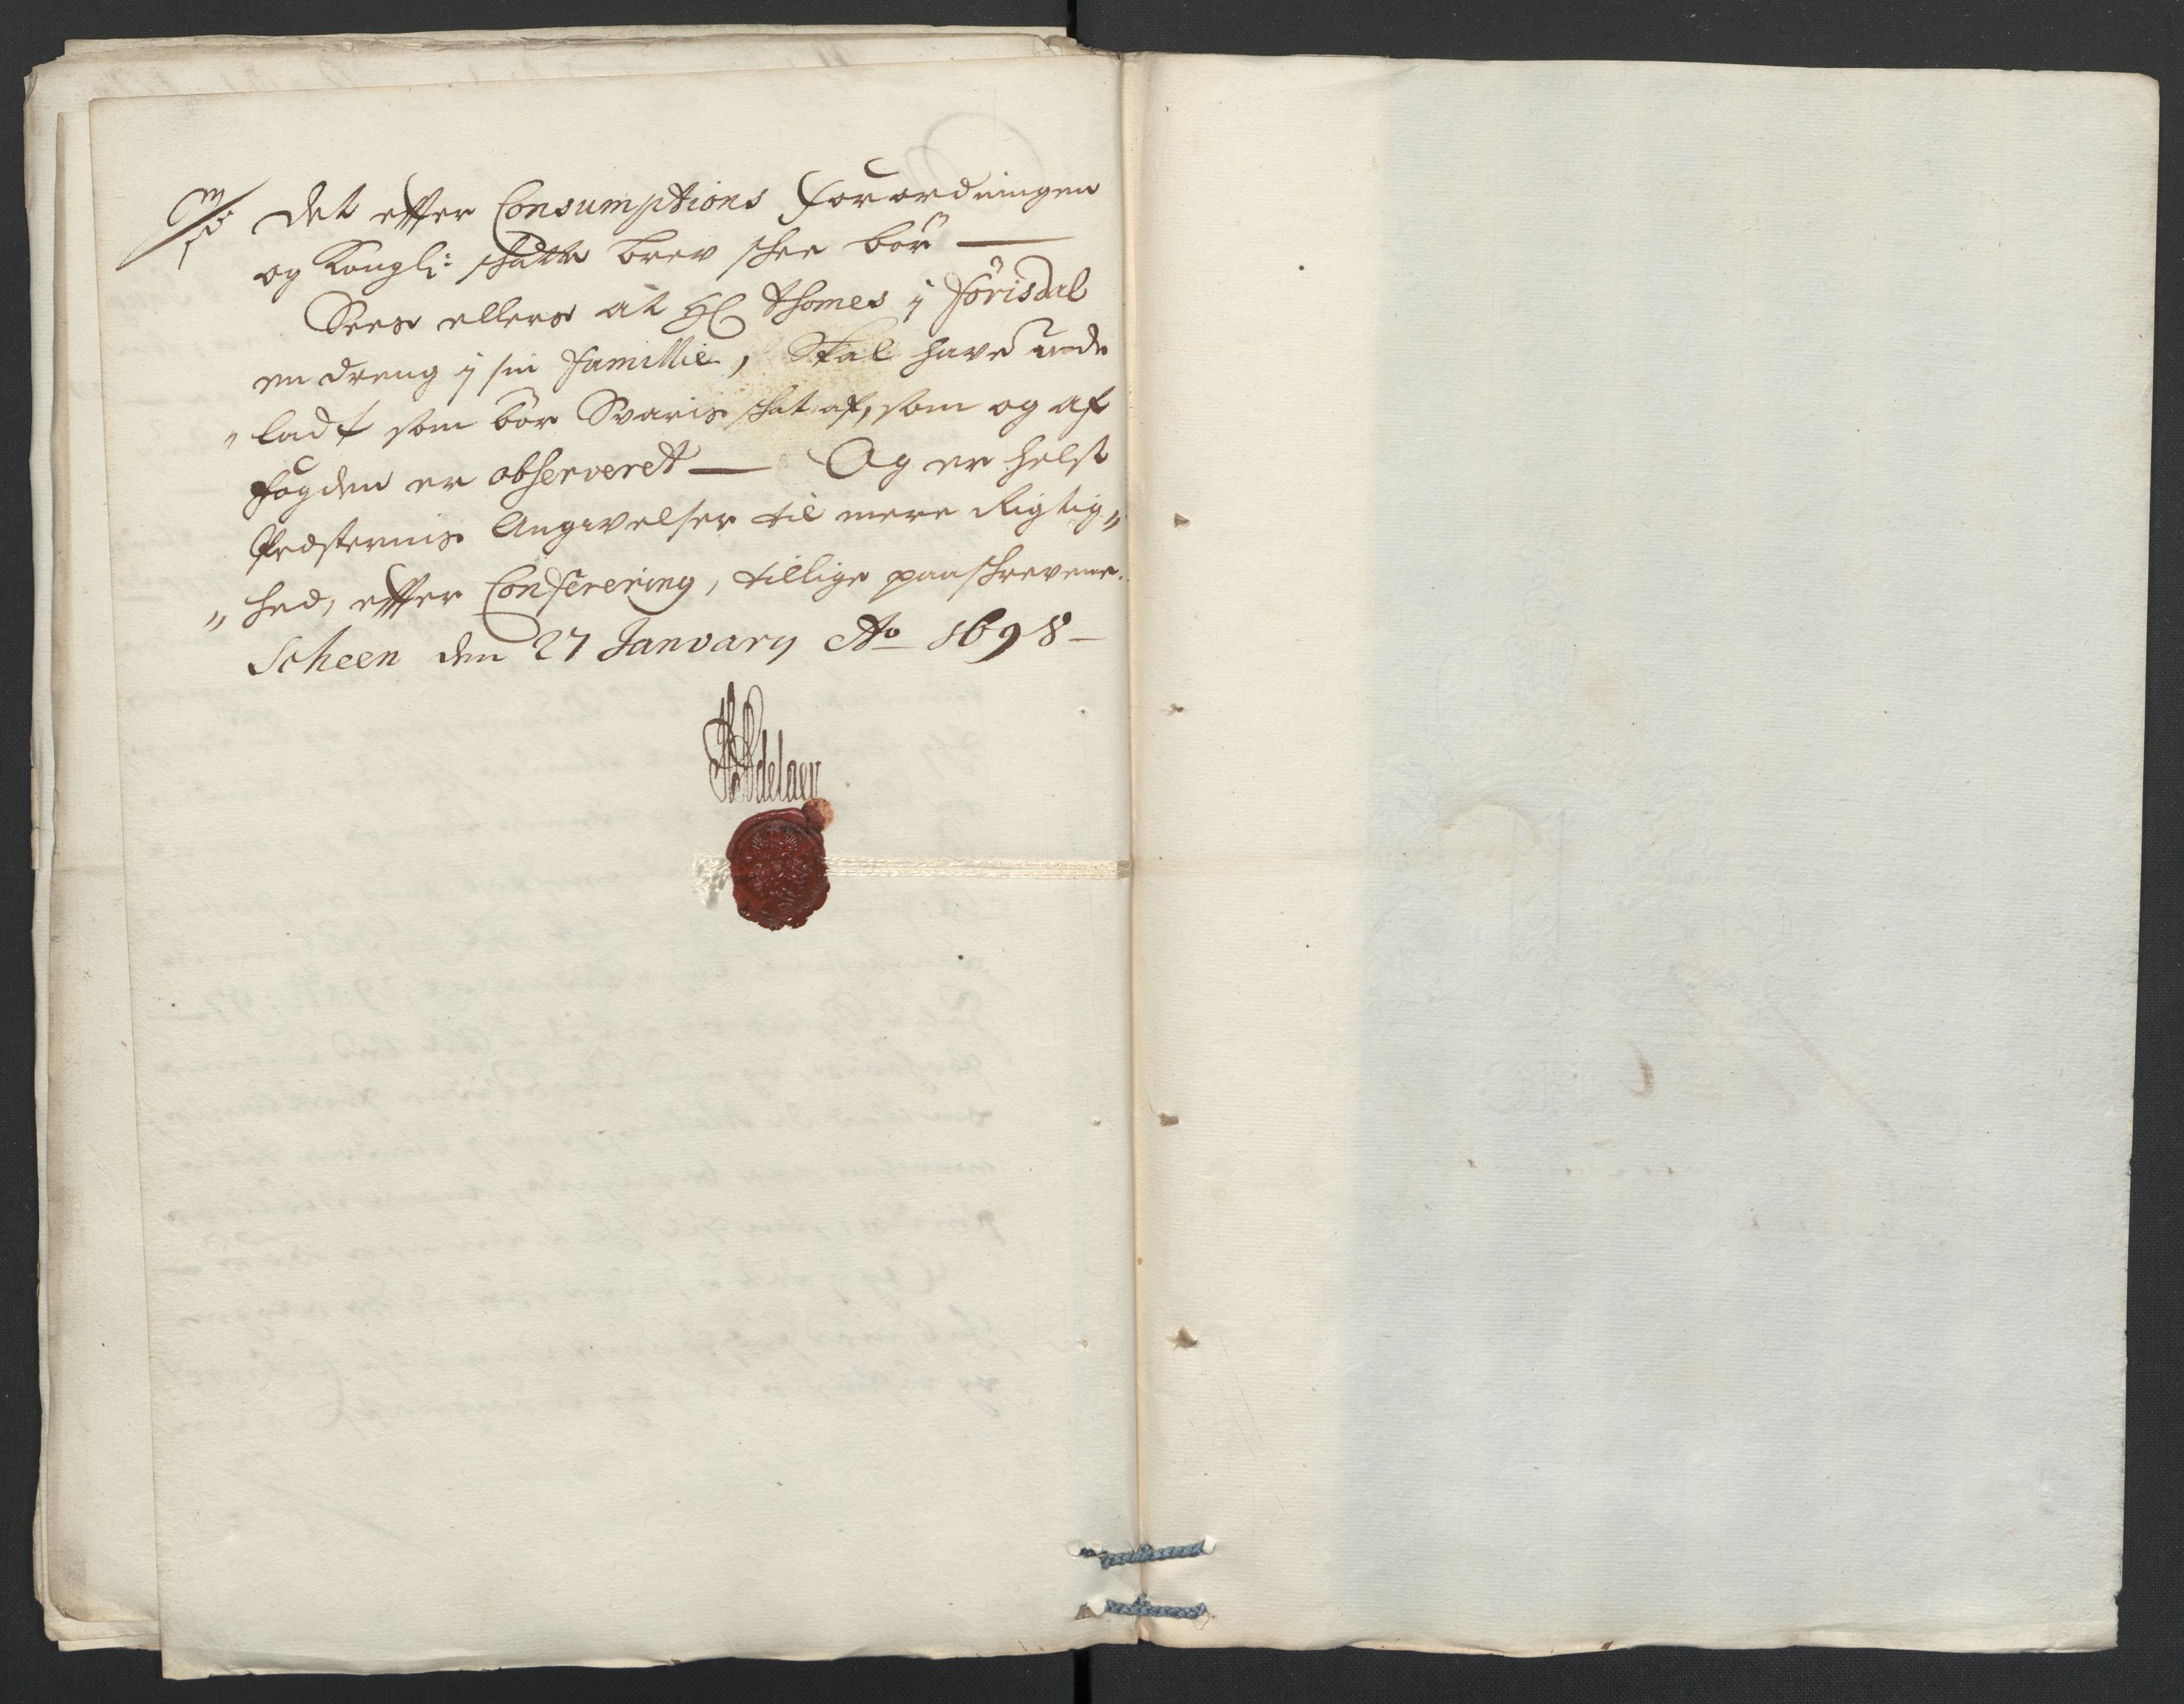 Det effter Consumptions Forordningen
og Kongl: skatte brev skee bör —
Sees ellers at Hr Thomes j Förisdal
en dreng j sin Familie, Skal have unde
„ ladt som bör Svaris skat af, som og af
fogden er observeret — Og er helst
Præsternis Angivelser til mere Rigtig„
„ hed, effter Conferering, tillige paaskrevene.
Scheen den 27 January Ao 1698 —
Adelaer